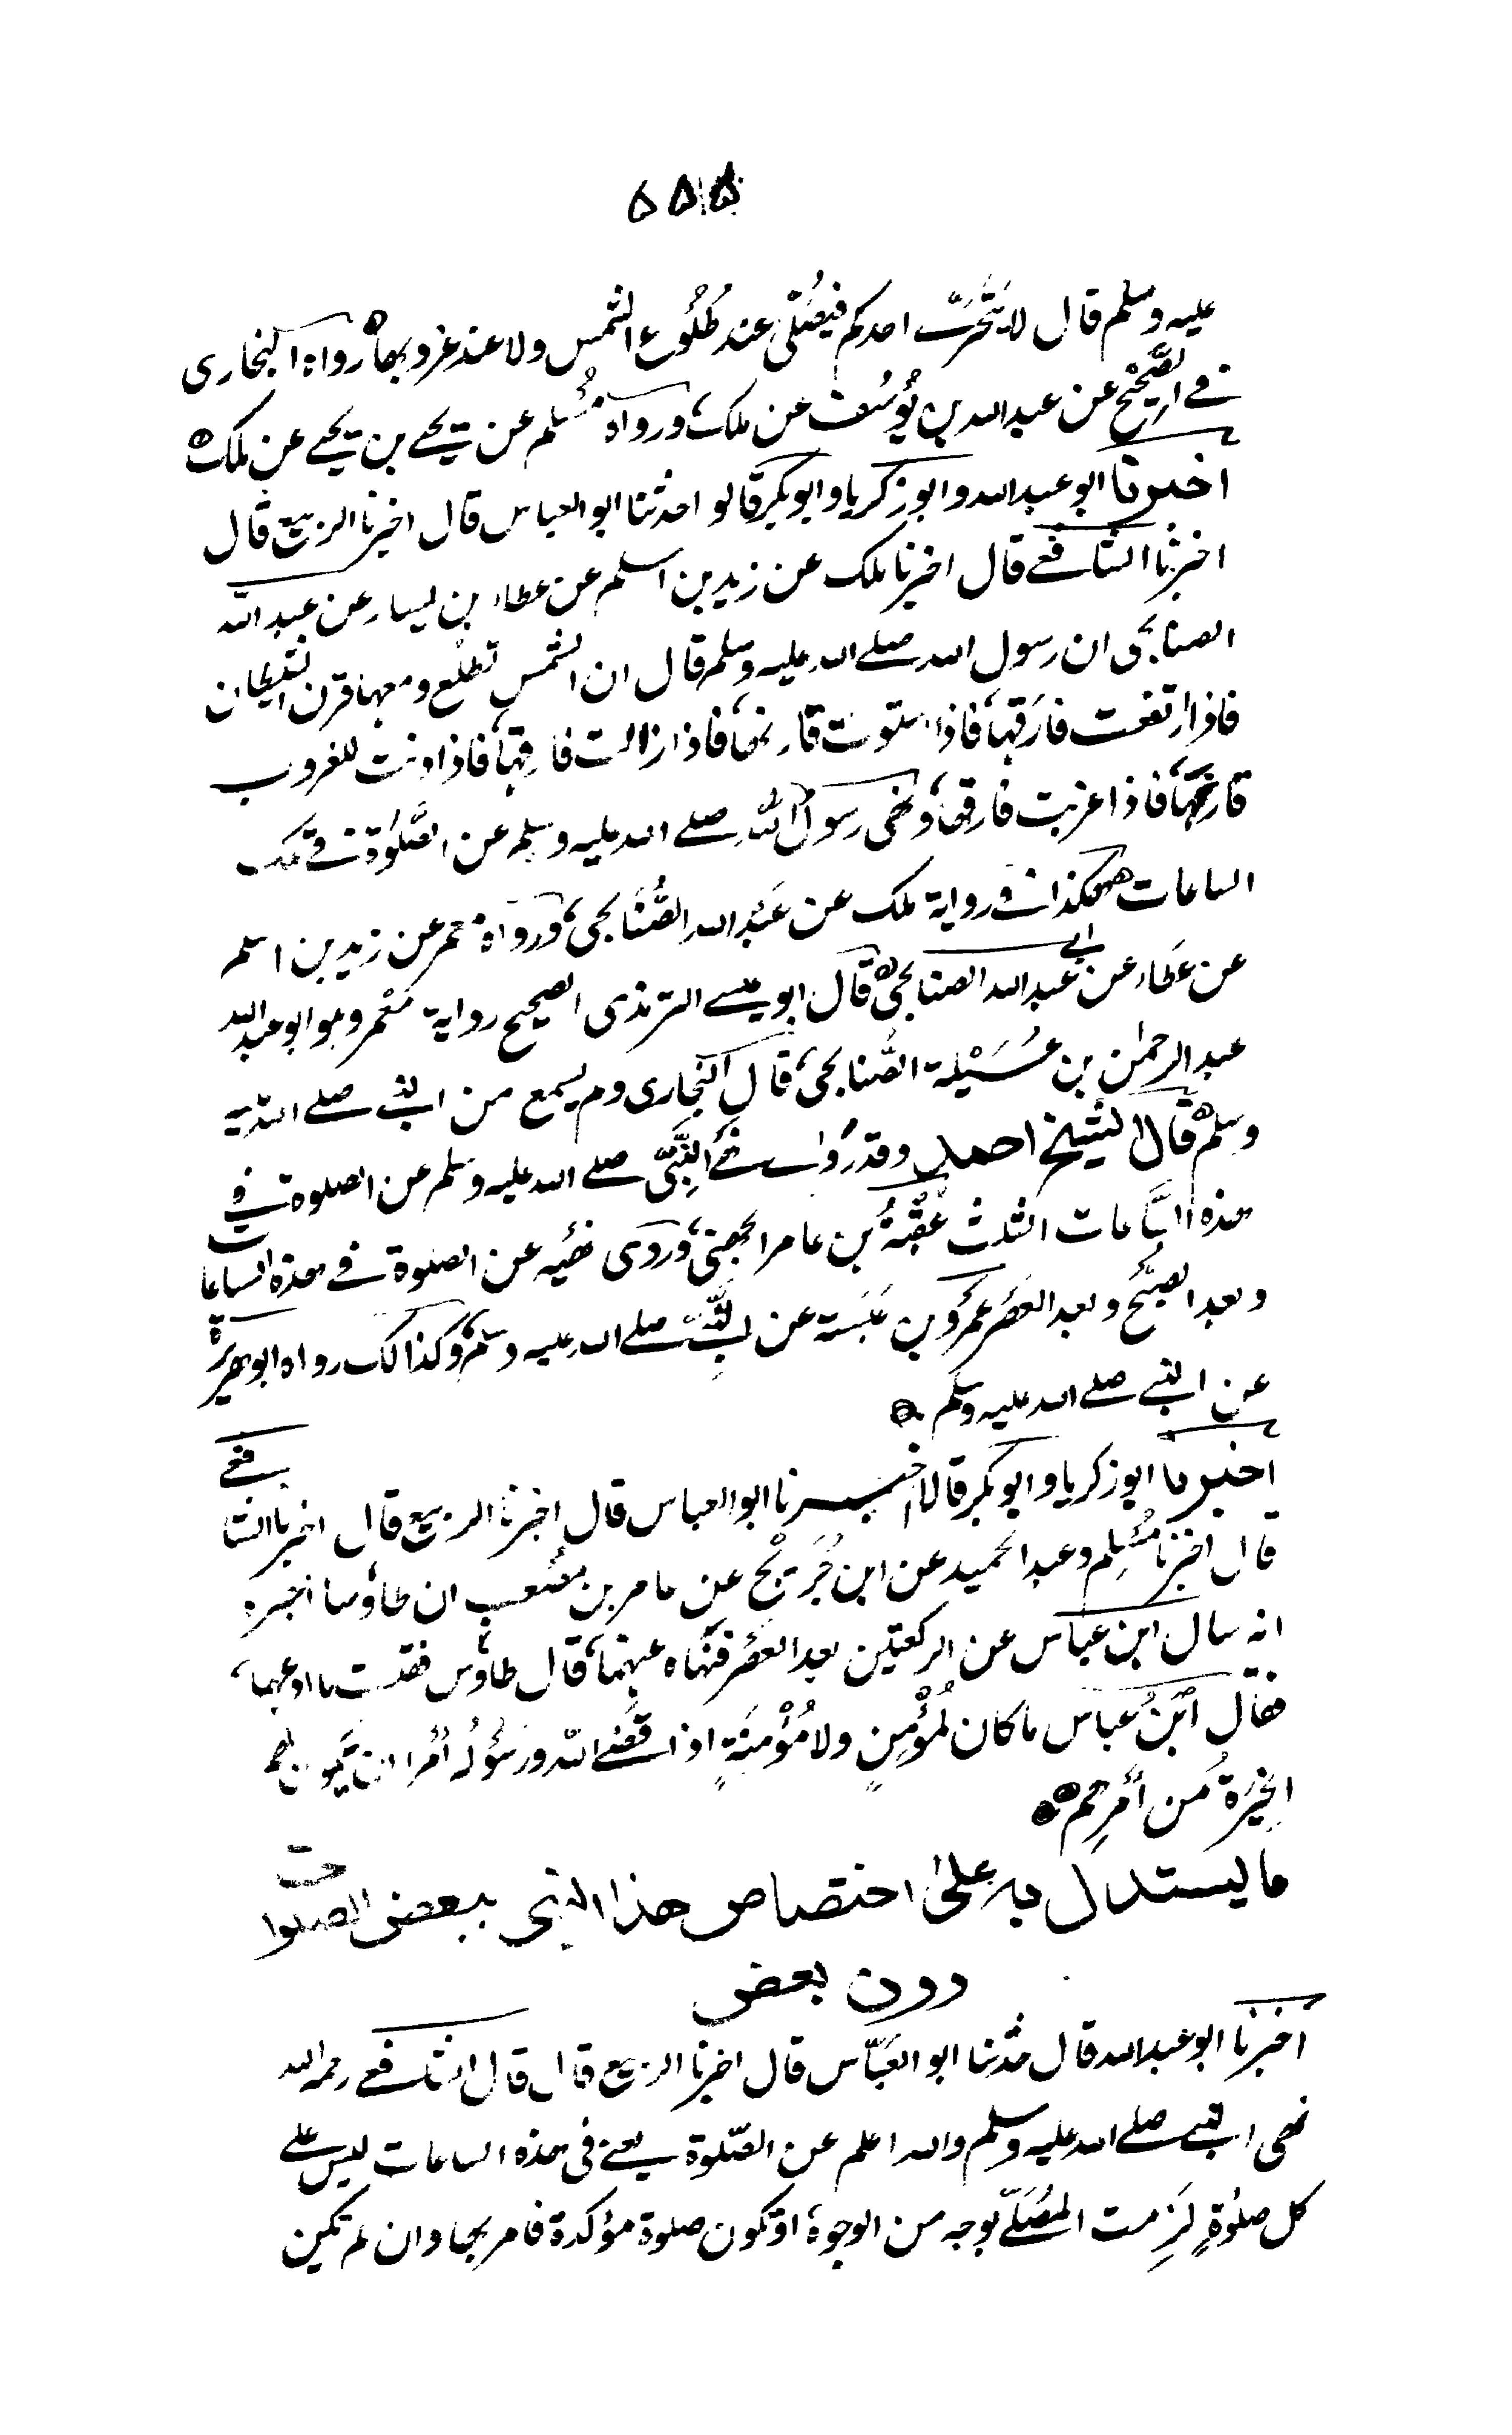 ۵۵۵
عليه وسلم قال لا يتحرَّ احدكم فيصلّي عند طُلُوع الشمس ولا عند غروبها رواه البخاري
في الصَّحِيْح عن عبد الله بن يُوسُف عن ملك ورواه مُسْلم عن يحيى بن يحيى عن ملك
اخبرنا ابو عبد الله وابو زكريا وابو بكر قالوا حدثنا ابو العباس قال اخبرنا الربيع قال
اخبرنا الشافعي قال اخبرنا ملك عن زيد بن اسلم عن عطاء بن يسار عن عبد الله
الصنابحي ان رسول الله صلى الله عليه وسلم قال ان الشمس تطلع ومعها قرن الشيطان
فاذا ارتفعت فارقها فاذا استوت قارنها فاذا زالت فارقها فاذا دنت للغروب
قارنها فاذا غربت فارقها ونهى رسول الله صلى الله عليه وسلم عن الصَّلوٰة في تلك
الساعات هكذا في رواية ملك عن عَبْد الله الصُّنابحي ورواه معمر عن زيد بن اسلم
عن عَطاء عن ابي عبد الله الصنابحي قال ابو عيسى الترمذي الصحيح رواية مَعْمر وهو ابو عبد الله
عبد الرحمٰن بن عُسَيْلة الصُّنابحي قال البخاري ولم يسمع من النبي صلى الله عليه
وسلم قال الشيخ احمد وقد روٰى نهي النَّبِيّ صلى الله عليه وسلم عن الصلوة في
هذه السَّاعات الثلث عُقْبَةُ بن عامر الجهني وَرَوى نهيه عن الصلوة في هذه الساعات
وبعد الصبُّح وبعد العَصْر عَمْرُو بن عَبَسة عن النَّبي صلى الله عليه وسلم وكذالك رواه ابو هريرة
عن النبي صلى الله عليه وسلم
اخبرنا ابو زكريا وابو بكر قالا اخبرنا ابو العباس قال اخبرنا الربيع قال اخبرنا الشافعي
قال اخبرنا مُسْلِم وعبد الحميد عن ابن جُرَيْج عن عامر بن مصْعب ان طاوُسا اخبره
انه سال ابن عباس عن الركعتين بعد العصْر فنهاه عنهما قال طاوُس فقلت ما ادعهما
فقال ابْنُ عباس ما كان لمُؤْمِنٍ ولا مُؤْمِنَةٍ اذا قضَى الله ورَسُوْلُه اَمْرا ان يَّكون لهم
الخِيَرَةُ مِن اَمْرِهم
ما يستدل به على اختصاص هذا النهي ببعض الصلوات
دون بعض
اخبرنا ابو عبد الله قال حَدثنا ابو العَبّاس قال اخبرنا الربيع قال قال الشافعي رحمه الله
نهى النبي صلى الله عليه وسلم والله اعلم عن الصّلوة يعني في هذه الساعات ليس على
كل صلوٰةٍ لَزِمت المُصَلّي بوجه من الوجوه او تكون صلوة مؤكدة فامر بها وان لم تكن